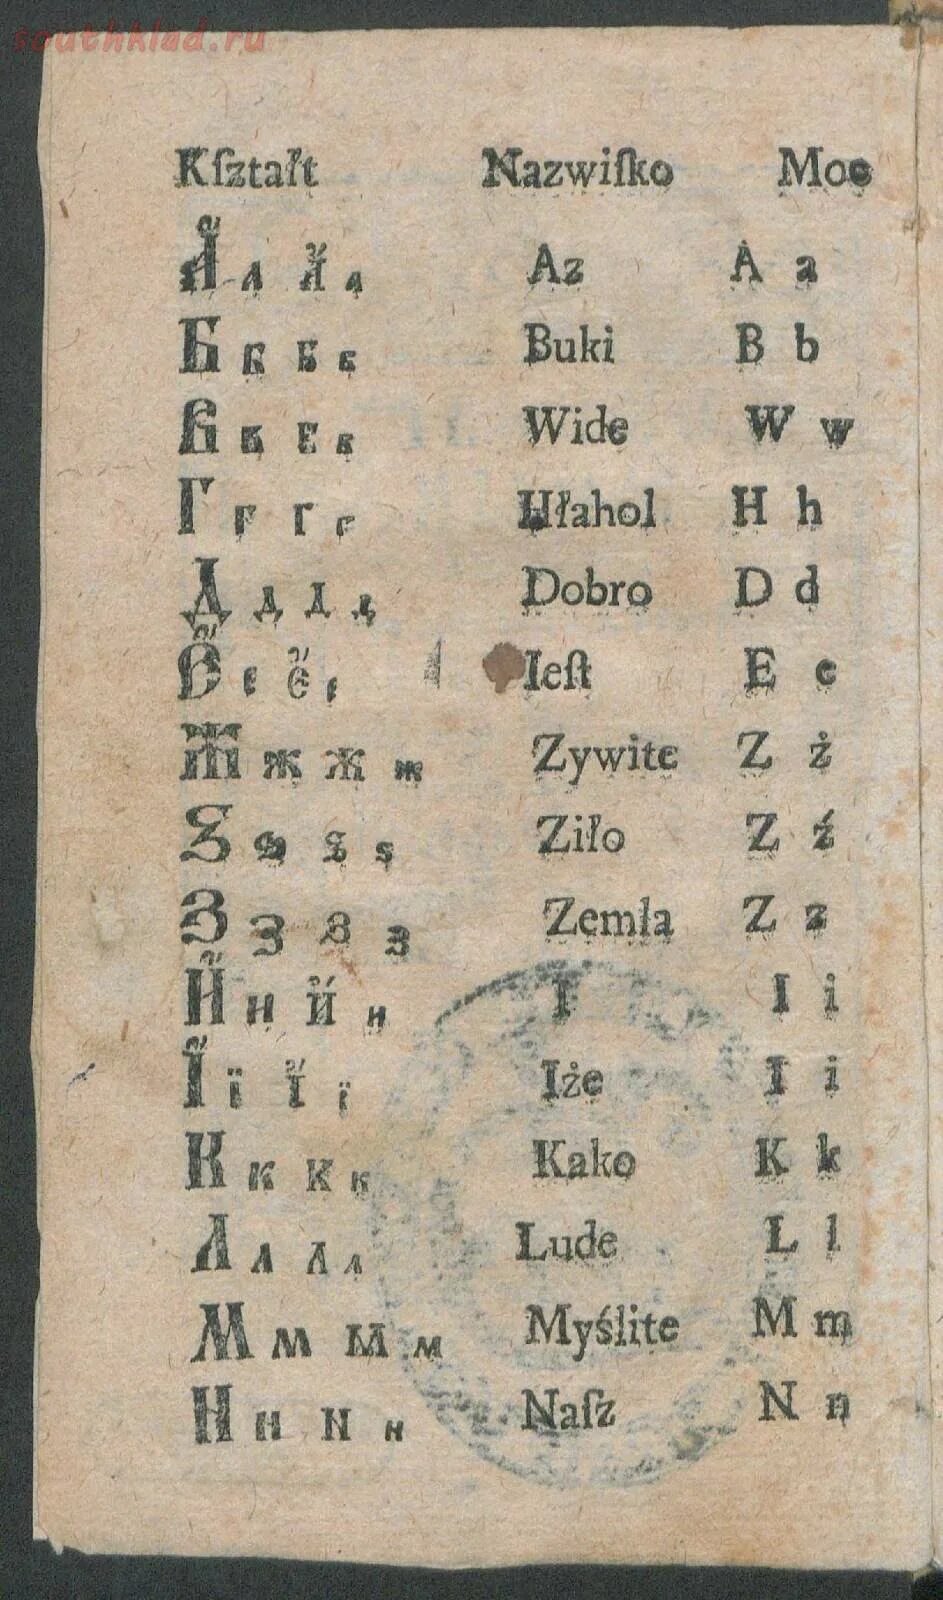 southklad.ru
Kſztałt Nazwiſko Moc
А҆ а А҆ а Az A a
Б б Б б Buki B b
В в В в Wide W w
Г г Г г Hłahol H h
Д д Д д Dobro D d
Є҆ є Є҆ є Ieſt E e
Ж ж Ж ж Zywite Z ż
Ѕ ѕ Ѕ ѕ Ziło Z ź
З з З з Zemla Z z
И҆ и И҆ и I I i
І҆ ї І҆ ї Iże I i
К к К к Kako K k
Л л Л л Lude L l
М м М м Myślite M m
Н н N н Naſz N n